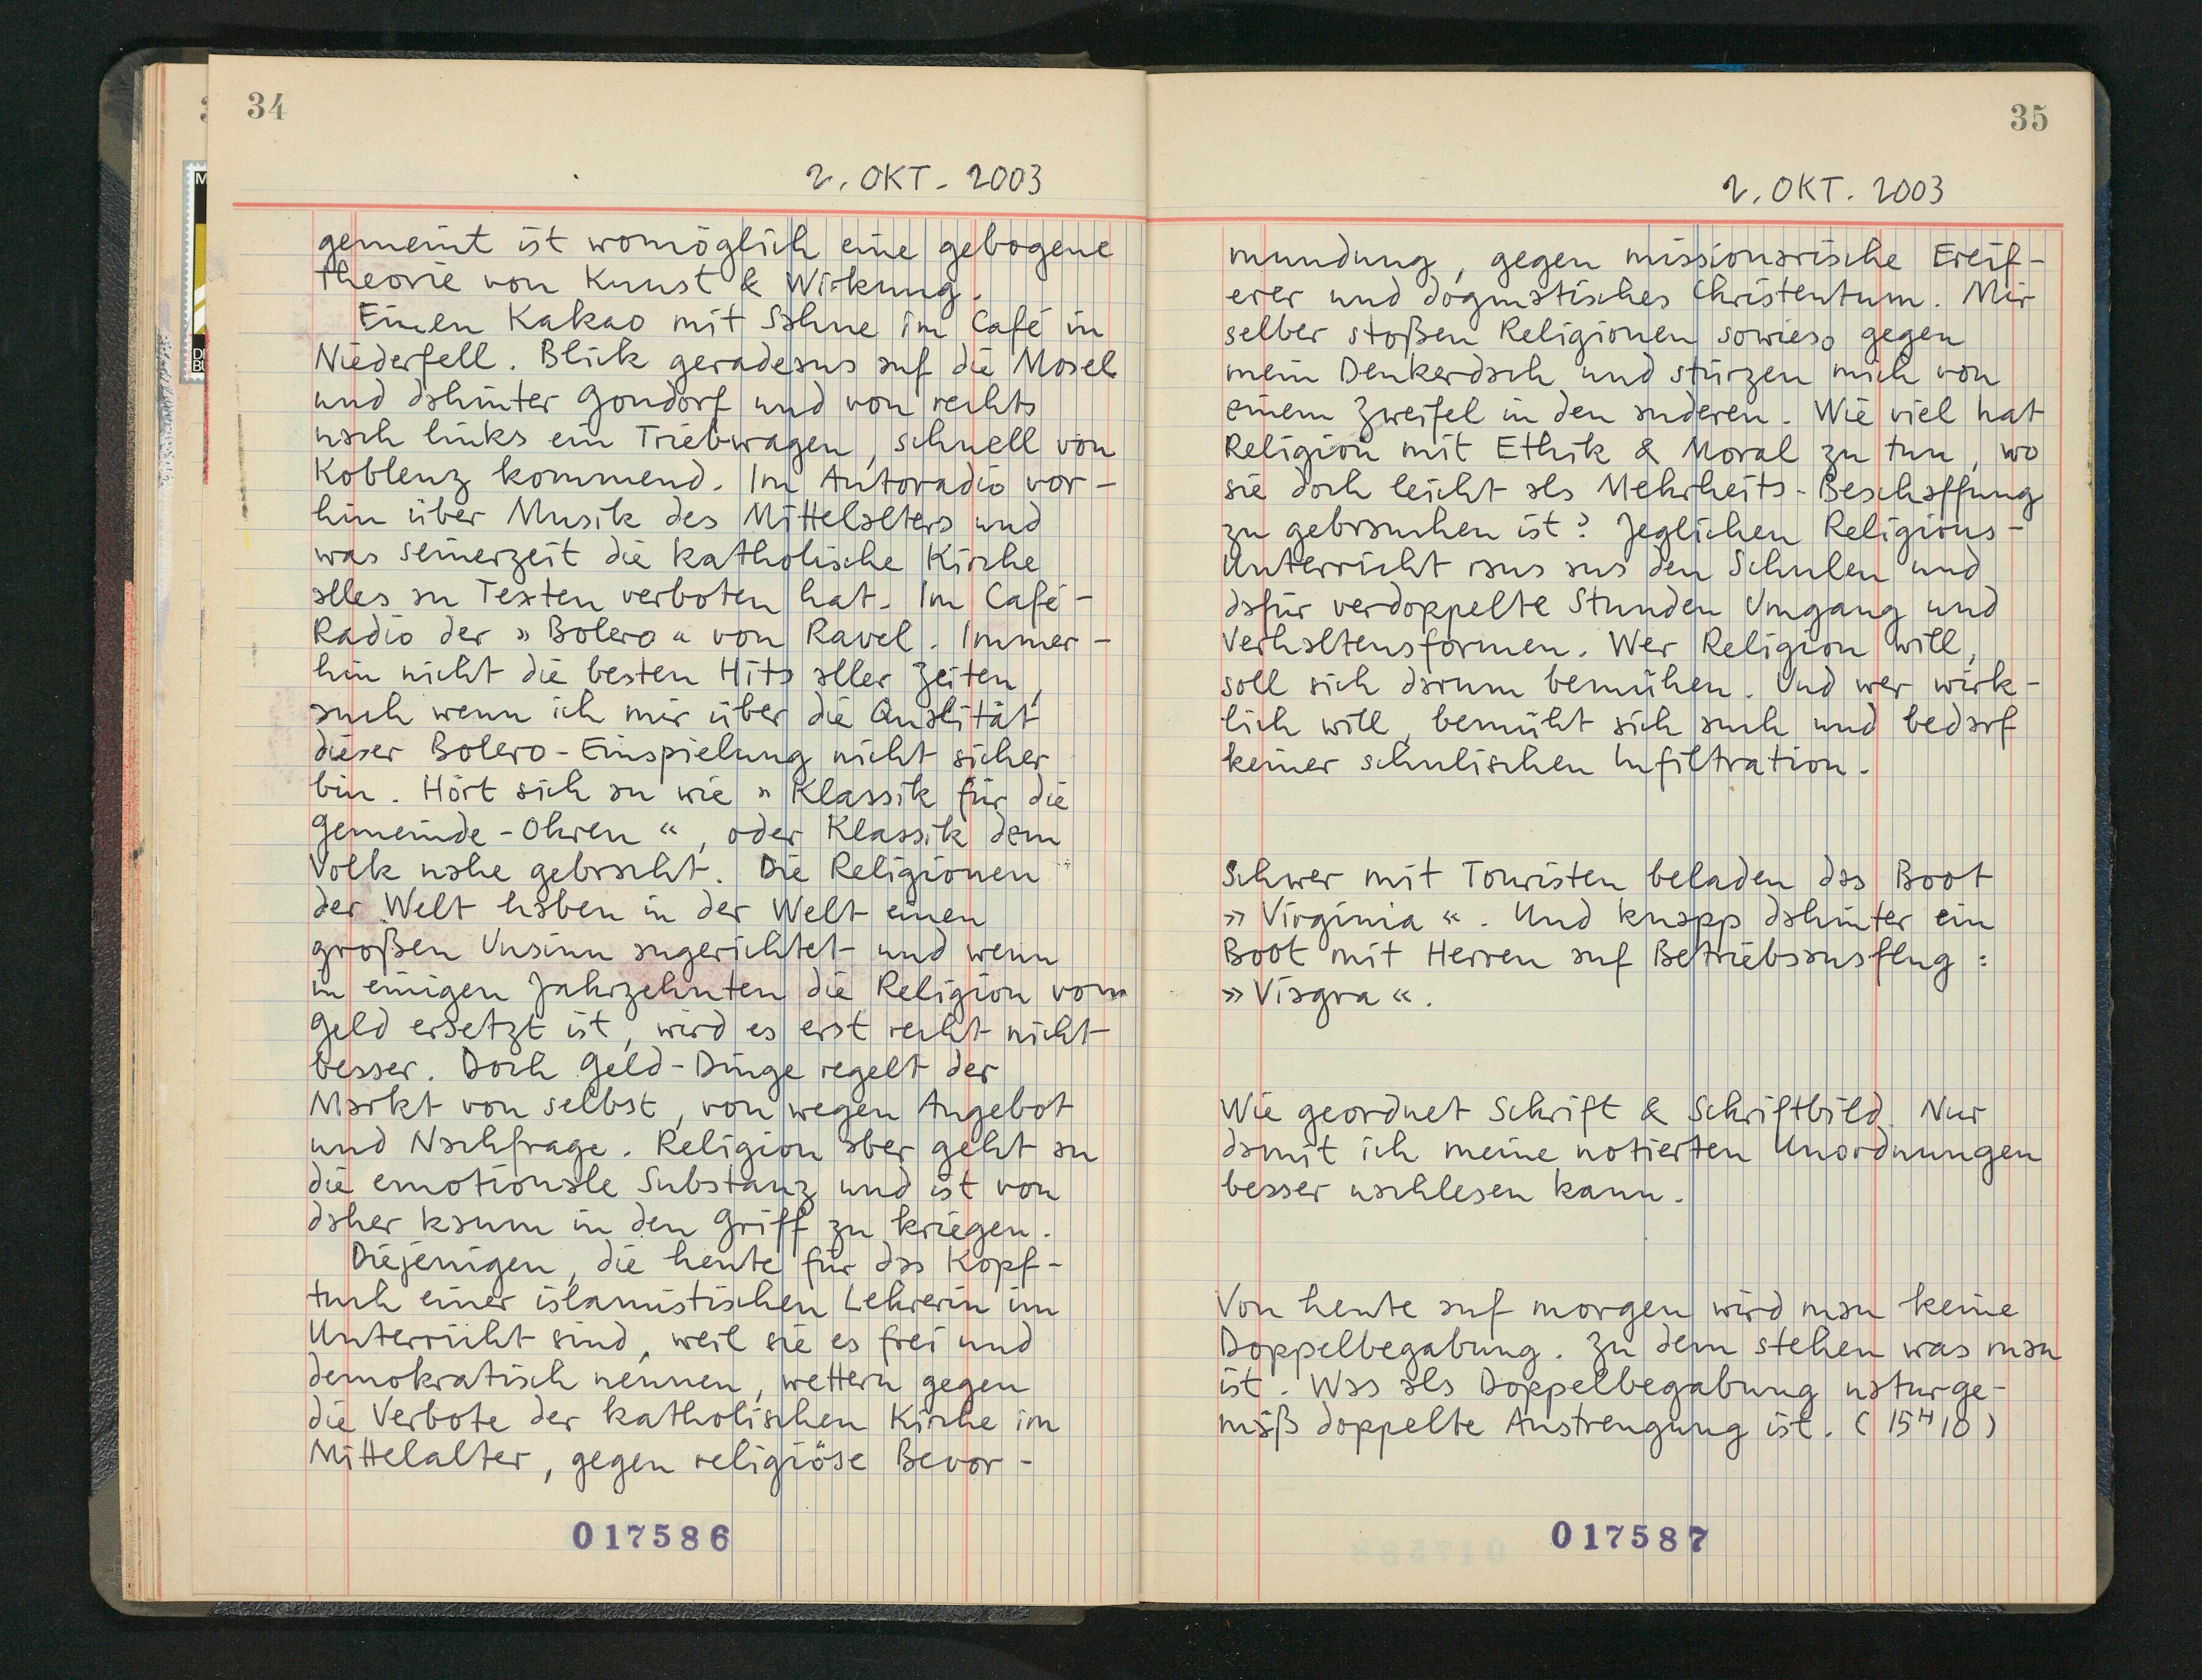 34
2. OKT. 2003
gemeint ist womöglich eine gebogene
Theorie von Kunst & Wirkung.
Einen Kakao mit Sahne im Café in
Niederfell. Blick geradeaus auf die Mosel
und dahinter Gondorf und von rechts
nach links ein Triebwagen, schnell von
Koblenz kommend. Im Autoradio vor-
hin über Musik des Mittelalters und
was seinerzeit die katholische Kirche
alles an Texten verboten hat. Im Café-
Radio der »Bolero« von Ravel. Immer-
hin nicht die besten Hits aller Zeiten,
auch wenn ich mir über die Qualität
dieser Bolero-Einspielung nicht sicher
bin. Hört sich an wie »Klassik für die
Gemeinde-Ohren“, oder Klassik dem
Volk nahe gebracht. Die Religionen
der Welt haben in der Welt einen
großen Unsinn angerichtet und wenn
in einigen Jahrzehnten die Religion vom
Geld ersetzt ist, wird es erst recht nicht
besser. Doch Geld-Dinge regelt der
Markt von selbst, von wegen Angebot
und Nachfrage. Religion aber geht an
die emotionale Substanz und ist von
daher kaum in den Griff zu kriegen.
Diejenigen, die heute für das Kopf-
tuch einer islamistischen Lehrerin im
Unterricht sind, weil sie es frei und
demokratisch nennen, wettern gegen
die Verbote der katholischen Kirche im
Mittelalter, gegen religiöse Bevor-
017586
35
2. OKT. 2003
mundung, gegen missionarische Ereif-
erer und dogmatisches Christentum. Mir
selber stoßen Religionen sowieso gegen
mein Denkerdach und stürzen mich von
einem Zweifel in den anderen. Wie viel hat
Religion mit Ethik & Moral zu tun, wo
sie doch leicht als Mehrheits-Beschaffung
zu gebrauchen ist? Jeglichen Religions-
Unterricht raus aus den Schulen und
dafür verdoppelte Stunden Umgang und
Verhaltensformen. Wer Religion will,
soll sich darum bemühen. Und wer wirk-
lich will, bemüht sich auch und bedarf
keiner schulischen Infiltration.
Schwer mit Touristen beladen das Boot
»Virginia«. Und knapp dahinter ein
Boot mit Herren auf Betriebsausflug:
»Viagra«.
Wie geordnet Schrift & Schriftbild. Nur
damit ich meine notierten Unordnungen
besser nachlesen kann.
Von heute auf morgen wird man keine
Doppelbegabung. Zu dem stehen was man
ist. Was als Doppelbegabung naturge-
mäß doppelte Anstrengung ist. (15H10)
017587